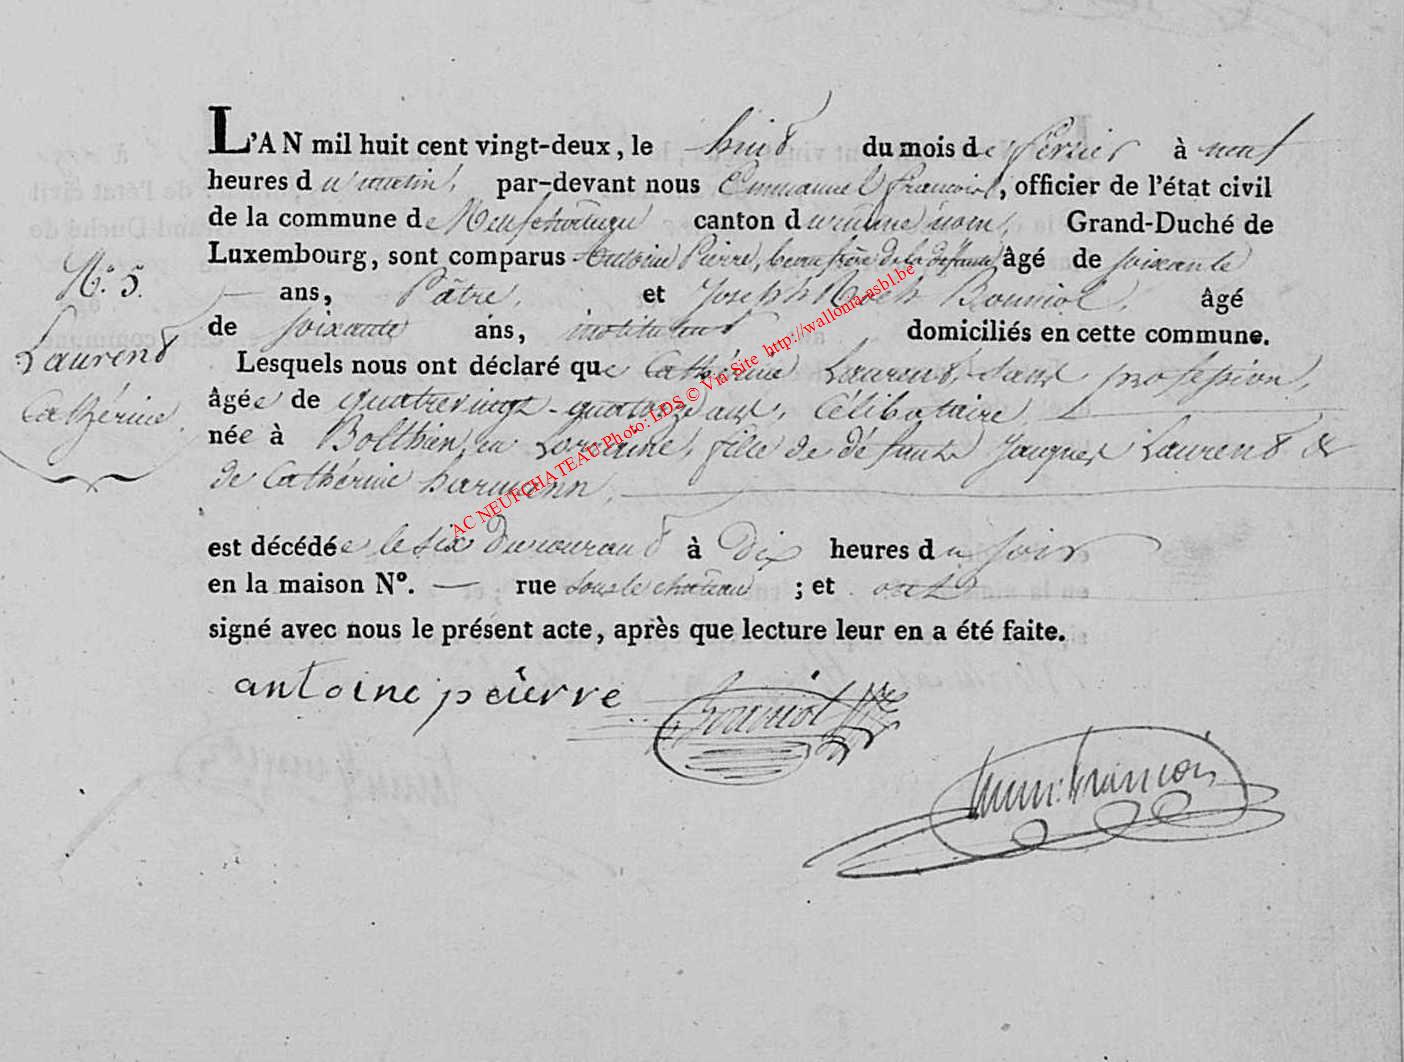 L'AN mil huit cent vingt-deux, le huit du mois de février à neuf
heures du matin, par-devant nous Emmanuel François, officier de l'état civil
de la commune de Neufchâteau canton du même nom, Grand-Duché de
Luxembourg, sont comparus Antoine Pierre, beau frère de la défunte âgé de soixante
N.° 5.
— ans, Pâtre, et Joseph Bouniol, âgé
de soixante ans, instituteur domiciliés en cette commune.
Laurent
Catherine.
Lesquels nous ont déclaré que Cathérine Laurent, sans profession,
âgée de quatrevingt-quatorze ans, Célibataire,
née à en Lorraine, fille de défunts Jacques Laurent &
de Cathérine harmann,
est décédée le six du courant à Dix heures du soir
en la maison N°. — rue sous le château ; et ont
signé avec nous le présent acte, après que lecture leur en a été faite.
antoine peierre
Bouniol
Emm. François
AC NEUFCHATEAU Photo: LDS © Via Site http://wallonia-asbl.be